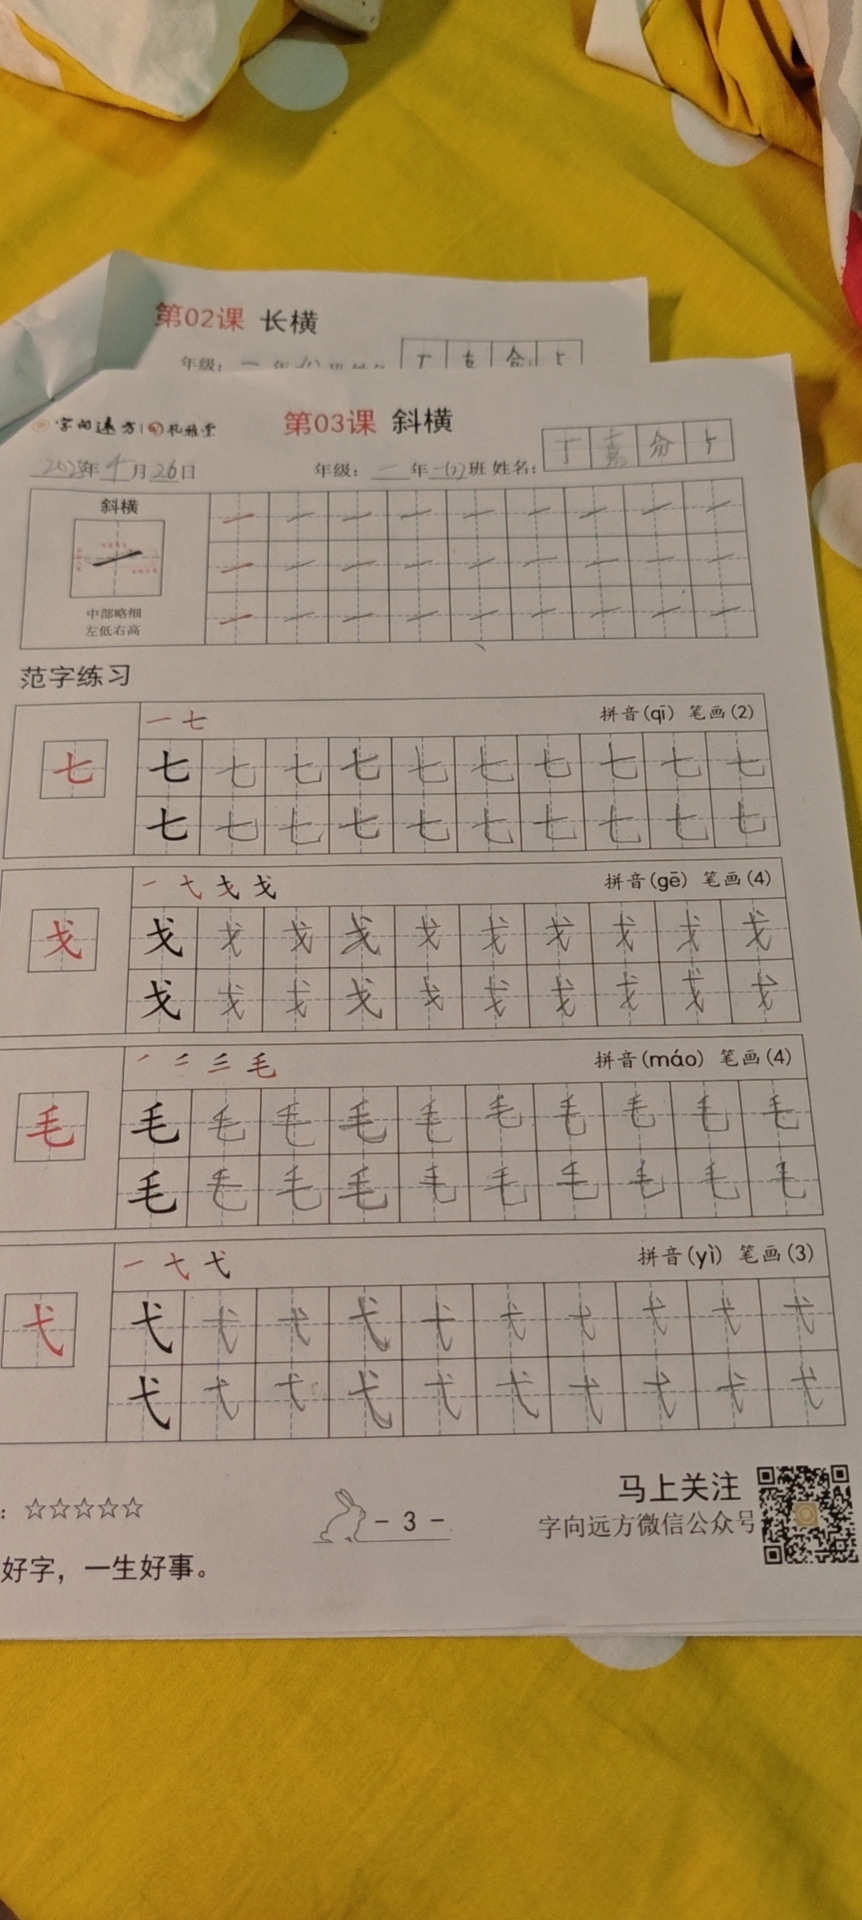 第02课 长横
年级：
第03课 斜横
年 4 月 26 日 年级： 一 年 (1) 班 姓名：
斜横
中部略细
左低右高
范字练习
一 七 拼音(qī) 笔画(2)
七 七 七 七 七 七 七 七 七 七 七
七 七 七 七 七 七 七 七 七 七
拼音(gē) 笔画(4)
戈 戈 戈 戈 戈 戈 戈 戈 戈 戈 戈
戈 戈 戈 戈 戈 戈 戈 戈 戈 戈
毛 拼音(máo) 笔画(4)
毛 毛 毛 毛 毛 毛 毛 毛 毛 毛 毛
毛 毛 毛 毛 毛 毛 毛 毛 毛 毛
弋 拼音(yì) 笔画(3)
弋 弋 弋 弋 弋 弋 弋 弋 弋 弋 弋
弋 弋 弋 弋 弋 弋 弋 弋 弋 弋
：☆☆☆☆☆
- 3 -
马上关注
字向远方微信公众号
好字，一生好事。